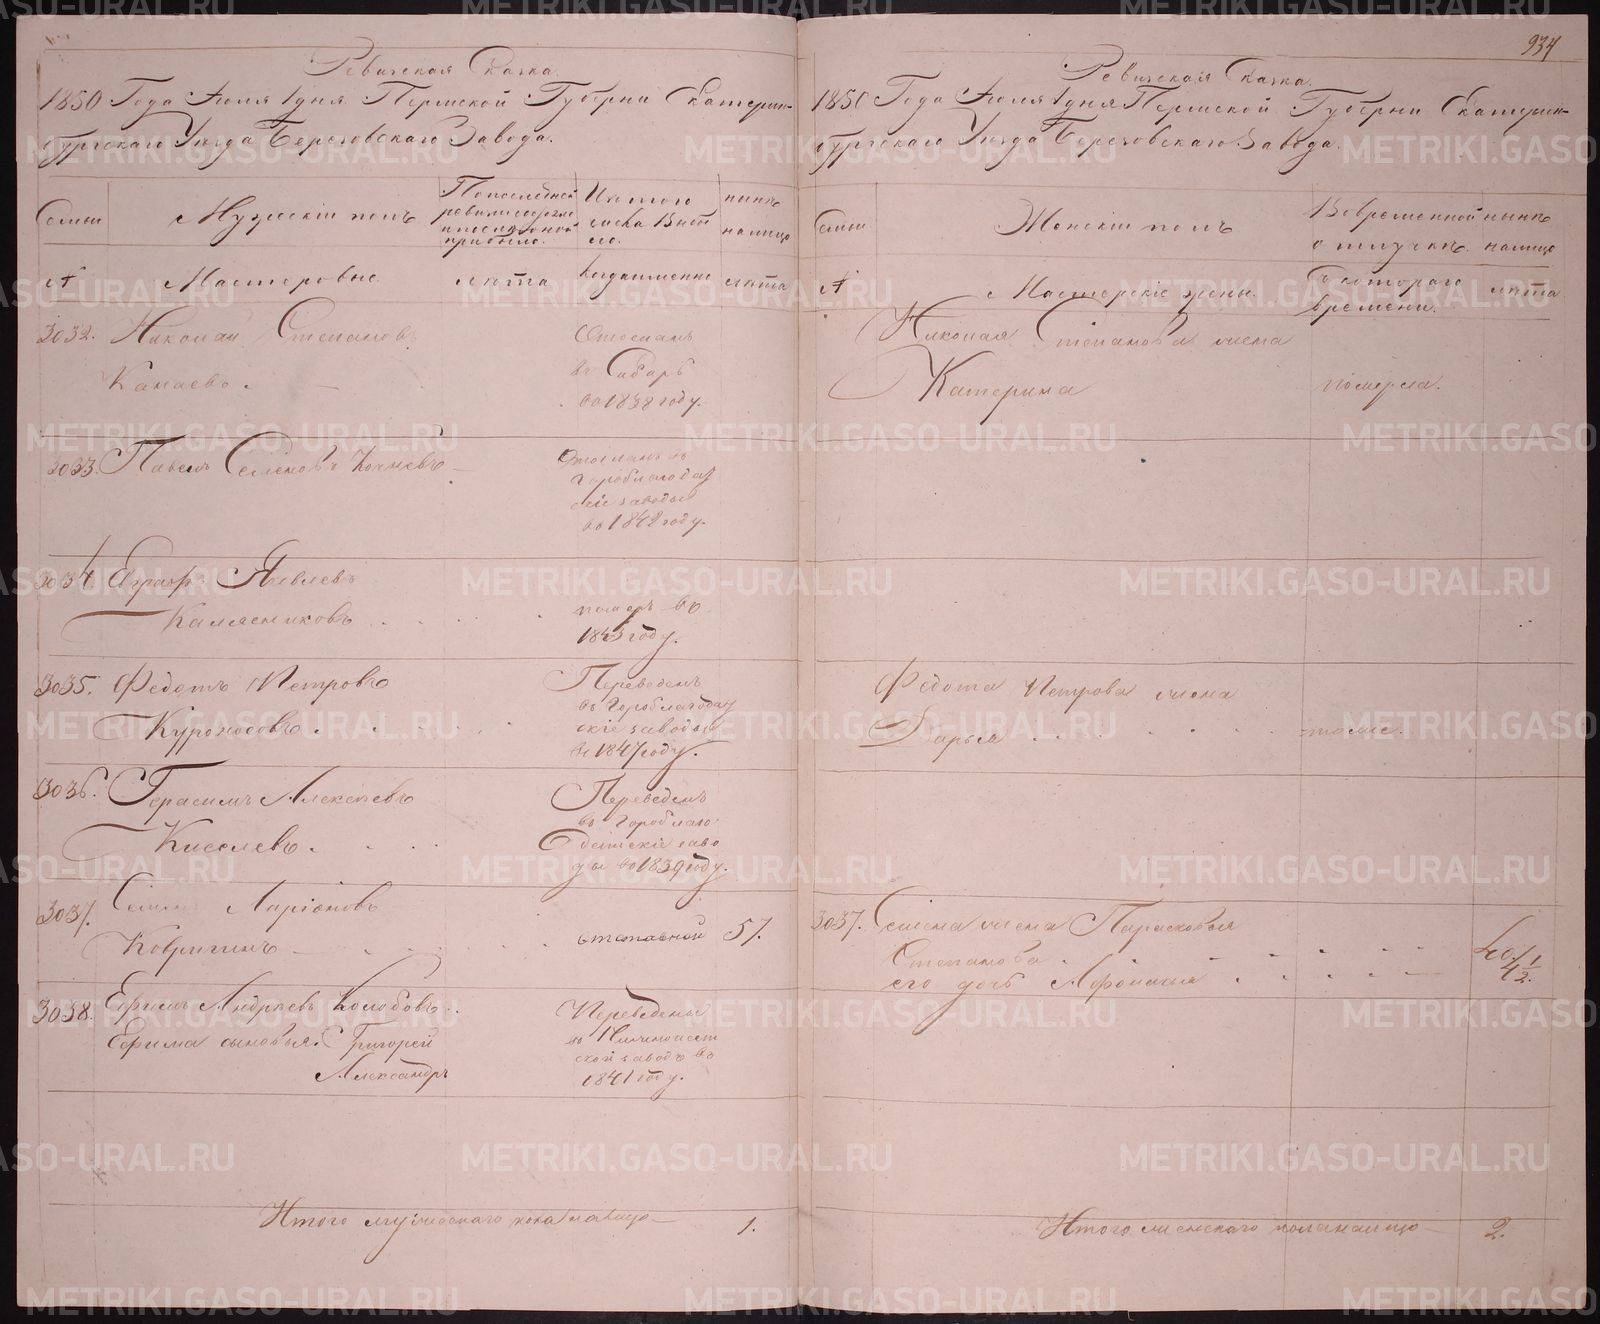 934
Ревижская Сказка.
1850 Года Июля 1 дня Пермской Губерни Екатерин-
бургскаго Уезда Березовскаго Завода.
Семьи
Мужескій полъ
По последней
ревизіи состояло
и после оной
прибыло.
Изъ того
числа выбы
ло.
ныне
на лицо
№
Мастеровые
лета
когда именно
лета
3032. Николай Степановъ
Канаевъ. —
Отосланъ
въ Сибирь
въ 1838 году.
3033. Павелъ Семеновъ —
Отосланъ въ
Гороблагодат
скіе заводы
въ 1842 году.
3034. Евграфъ Яковлевъ
Калясниковъ . . . .
померъ въ
1843 году.
3035. Федотъ Петровъ
Курносовъ . . . .
Переведенъ
въ Гороблагодат
скіе заводы
въ 1847 году.
3036. Герасимъ Алексеевъ
Киселевъ . . . .
Переведенъ
въ Гороблаго
датскіе заво
ды въ 1839 году.
3037. Семенъ Ларіоновъ
Ковригинъ — . . . .
отставной 57.
3038. Ефимъ Андреевъ Колобовъ . .
Ефима сыновья. Григорей
Александръ
Переведены
въ
ской заводъ въ
1841 году.
Итого мужескаго пола налицо — 1.
Ревижская Сказка.
1850 Года Июля 1 дня Пермской Губерни Екатерин-
бургскаго Уезда Березовскаго Завода.
Семьи
Женскій полъ
Во временной
отлучке.
ныне
налицо
№
Мастерскіе жены.
съ котораго
времени.
лета
Николая Степанова жена
Катерина
померла.
Федота Петрова жена
Дарья . . . . . . — тоже.
3037. Семена жена Парасковья
Степанова . . . . . — 40.
его дочь Афонасия . . . . — 1/2.
Итого женскаго пола налицо — 2.
METRIKI.GASO-URAL.RU